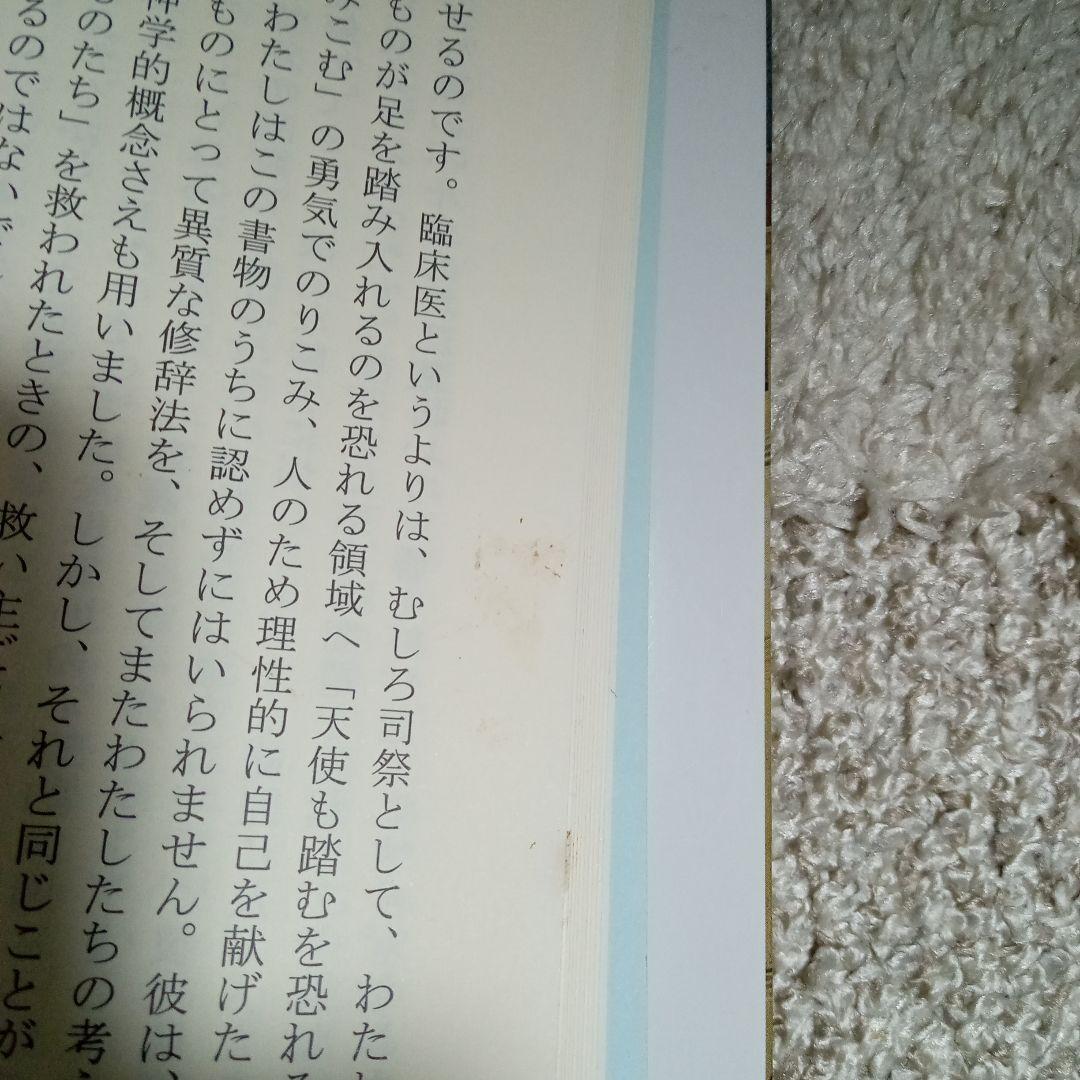 せるのです。臨床医というよりは、むしろ司祭として、わた
ものが足を踏み入れるのを恐れる領域へ「天使も踏むを恐れ
みこむ」の勇気でのりこみ、人のため理性的に自己を献げた
わたしはこの書物のうちに認めずにはいられません。彼は、
ものにとって異質な修辞法を、そしてまたわたしたちの考
神学的概念さえも用いました。しかし、それと同じことが
のたち」を救われたときの、救い主
るのではないで